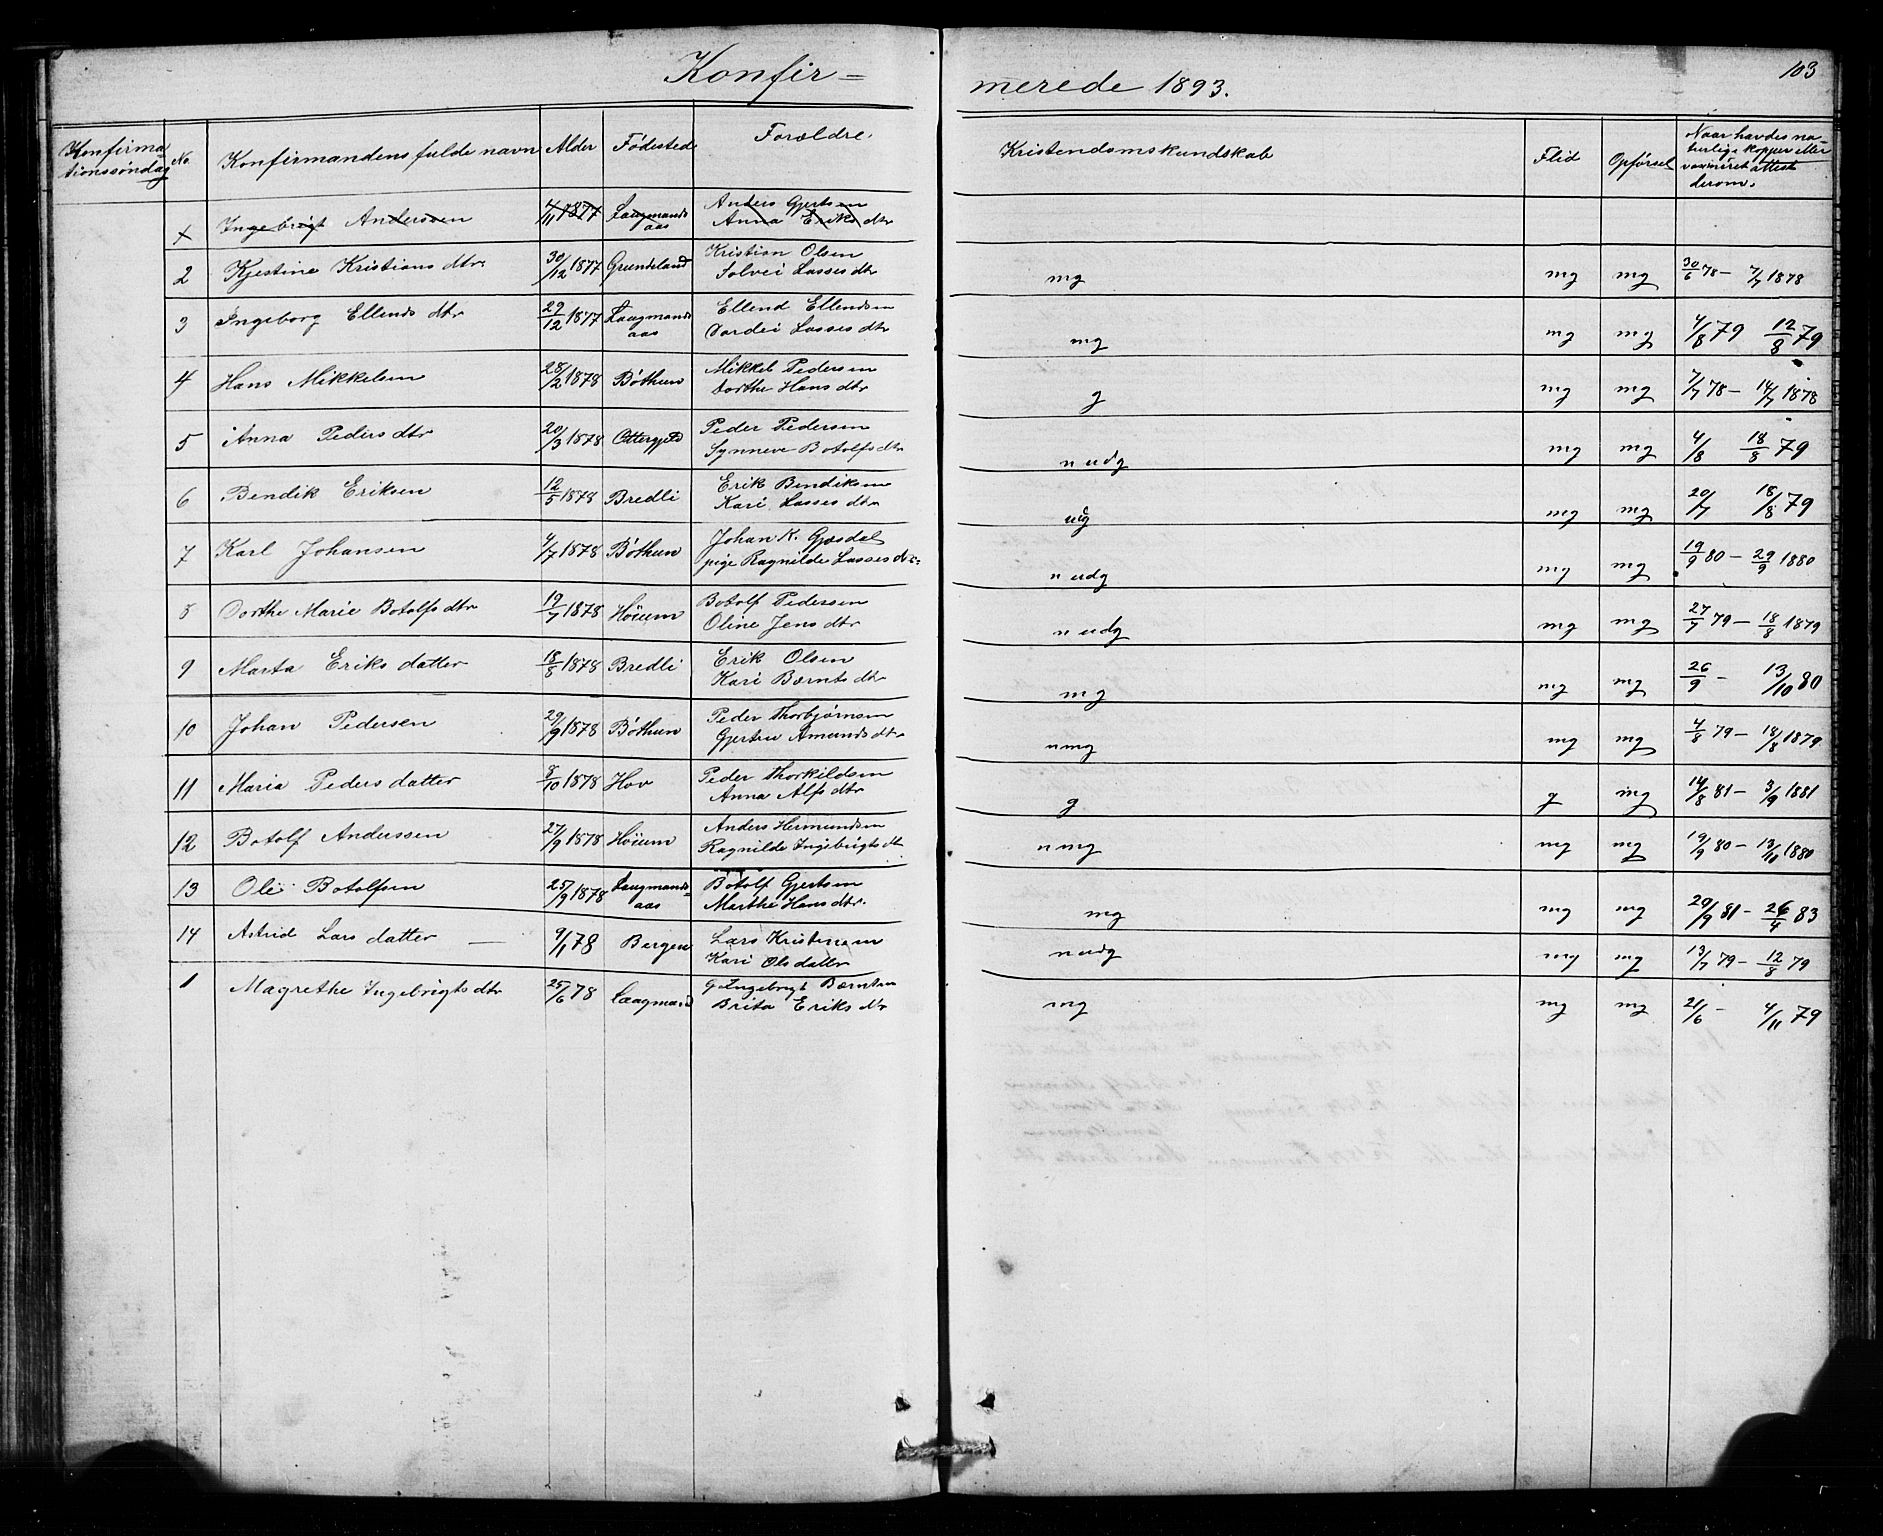 103
Konfir=
merede 1893.
Konfirma=
tionssøndag No. Konfirmandens fulde navn Alder Fødested Forældre. Kristendomskundskab Flid Opførsel Naar havdes na
turlige kopper eller
vaxineret attest
derom.
x Ingebrigt Anderssen 4/11 1877 Laugmands
aas Anders Gjertsen
Anna Eriks dtr
2 Kjestine Kristians dtr. 30/12 1877 Grundeland Kristian Olsen
Solvei Lasses dtr mg mg mg 30/6 78 - 7/7 1878
3 Ingeborg Ellends dtr 29/12 1877 Laugmands
aas Ellend Ellendsen
Dordei Lasses dtr mg mg mg 4/8 79 12/8 79
4 Hans Mikkelsen 28/2 1878 Bøthun Mikkel Pedersen
Dorthe Hans dtr g mg mg 7/7 78 - 14/7 1878
5 Anna Peders dtr 20/3 1878 Peder Pedersen
Synneve Botolfs dtr mg mg 4/8 18/8 79
6 Bendik Eriksen 12/5 1878 Bredli Erik Bendiksen
Kari Lasses dtr mg mg 20/7 18/8 79
7 Karl Johansen 4/7 1878 Bøthun Johan K. Gjesdal
pige Ragnilde Lasses dtr. mg mg 19/9 80 - 29/9 1880
8 Dorthe Marie Botolfs dtr 19/7 1878 Høium Botolf Pedersen
Oline Jens dtr mg mg 27/7 79 - 18/8 1879
9 Marta Eriks datter 18/8 1878 Bredli Erik Olsen
Kari Bernts dtr mg mg mg 26/9 - 13/10 80
10 Johan Pedersen 29/9 1878 Bøthun Peder Thorbjørnsen
Gjertru Amunds dtr nmg mg mg 4/8 79 - 18/8 1879
11 Maria Peders datter 8/10 1878 Hov Peder Thorkildsen
Anna Alfs dtr g g mg 14/8 81 - 3/9 1881
12 Botolf Anderssen 27/9 1878 Høium Anders Hermundsen
Ragnilde Ingebrigts dt nmg mg mg 19/9 80 - 13/10 1880
13 Ole Botolfsen 25/9 1878 Laugmands=
aas Botolf Gjertsen
Marthe Hans dtr. mg mg mg 20/9 81 - 26/4 83
14 Astrid Lars datter — 9/1 78 Bergen Lars Kristensen
Kari Olsdatter mg mg 13/7 79 - 12/8 79
1 Magrethe Ingebrigts dtr 25/6 78 Laagmand Ingebrigt Berntsen
Brita Eriks dtr mg mg mg 21/6 - 4/11 79